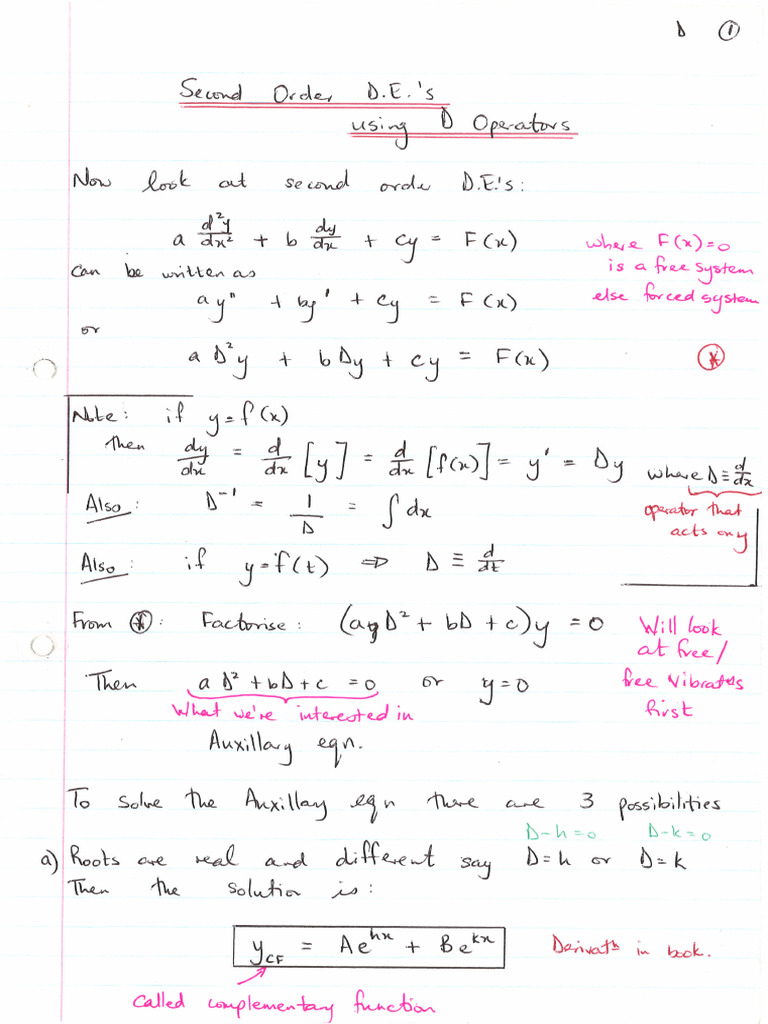 D ①
Second Order D.E.'s
using D Operators
Now look at second order D.E.'s:
a d²y/dx² + b dy/dx + cy = F(x)
where F(x)=0
is a free system
else forced system
can be written as
ay" + by' + cy = F(x)
or
a D²y + b Dy + cy = F(x) ⊛
Note: if y=f(x)
then dy/dx = d/dx [y] = d/dx [f(x)] = y' = Dy where D ≡ d/dx
operator that
acts on y
Also: D⁻¹ = 1/D = ∫ dx
Also: if y=f(t) ⇒ D ≡ d/dt
From ⊛: Factorise: (aD² + bD + c)y = 0
Will look
at free/
free vibrats
first
Then a D² + bD + c = 0 or y=0
What we're interested in
Auxillary eqn.
To solve the Auxillay eqn there are 3 possibilities
D-h=0 D-k=0
a) Roots are real and different say D=h or D=k
Then the solution is:
y_CF = Ae^hx + Be^kx Derivatⁿ in book.
Called complementary function